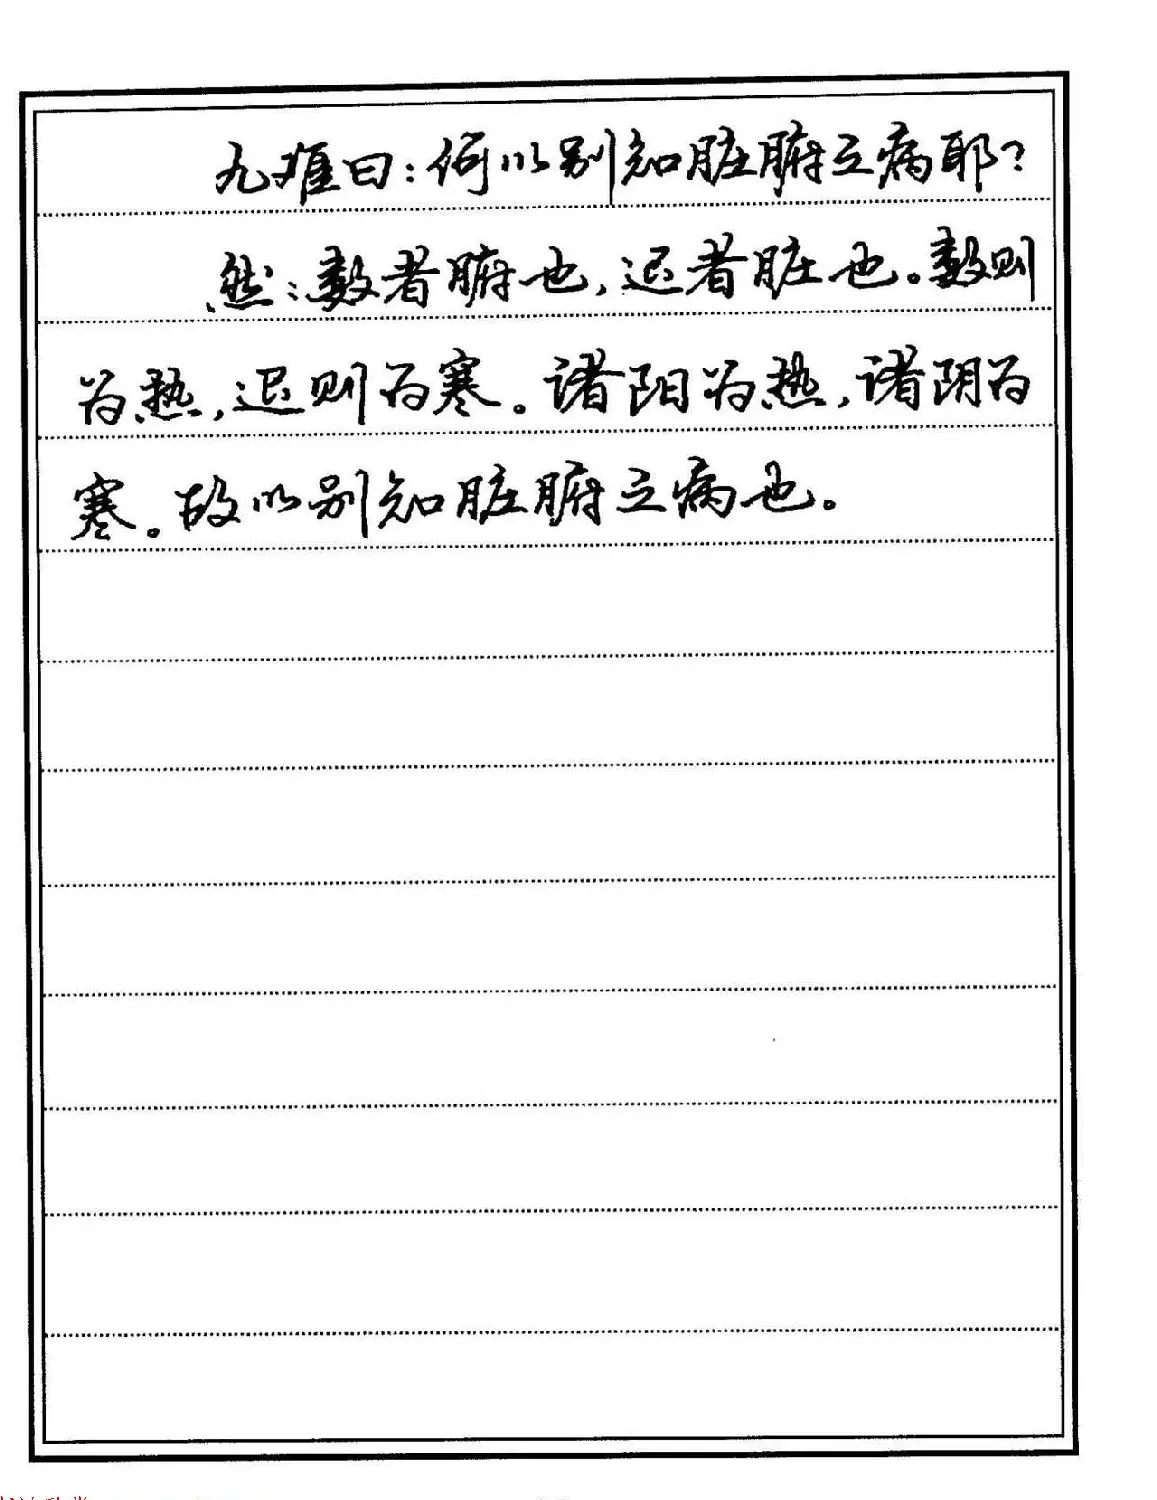 九难曰：何以别知脏腑之病耶？
然：数者腑也，迟者脏也。数则
为热，迟则为寒。诸阳为热，诸阴为
寒。故以别知脏腑之病也。